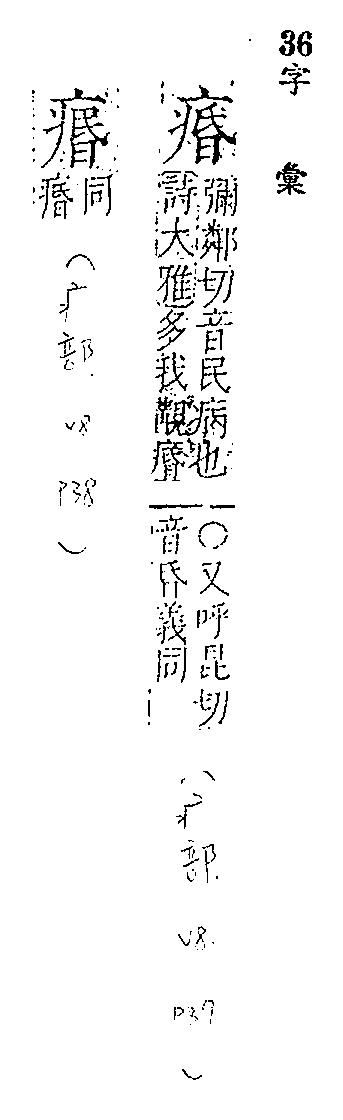 36字彙
痻
彌鄰切音民病也
詩大雅多我覯痻
〇又呼昆切
音昏義同
(疒部. v8. P37)
痻
同
痻
(疒部. v8 P38)